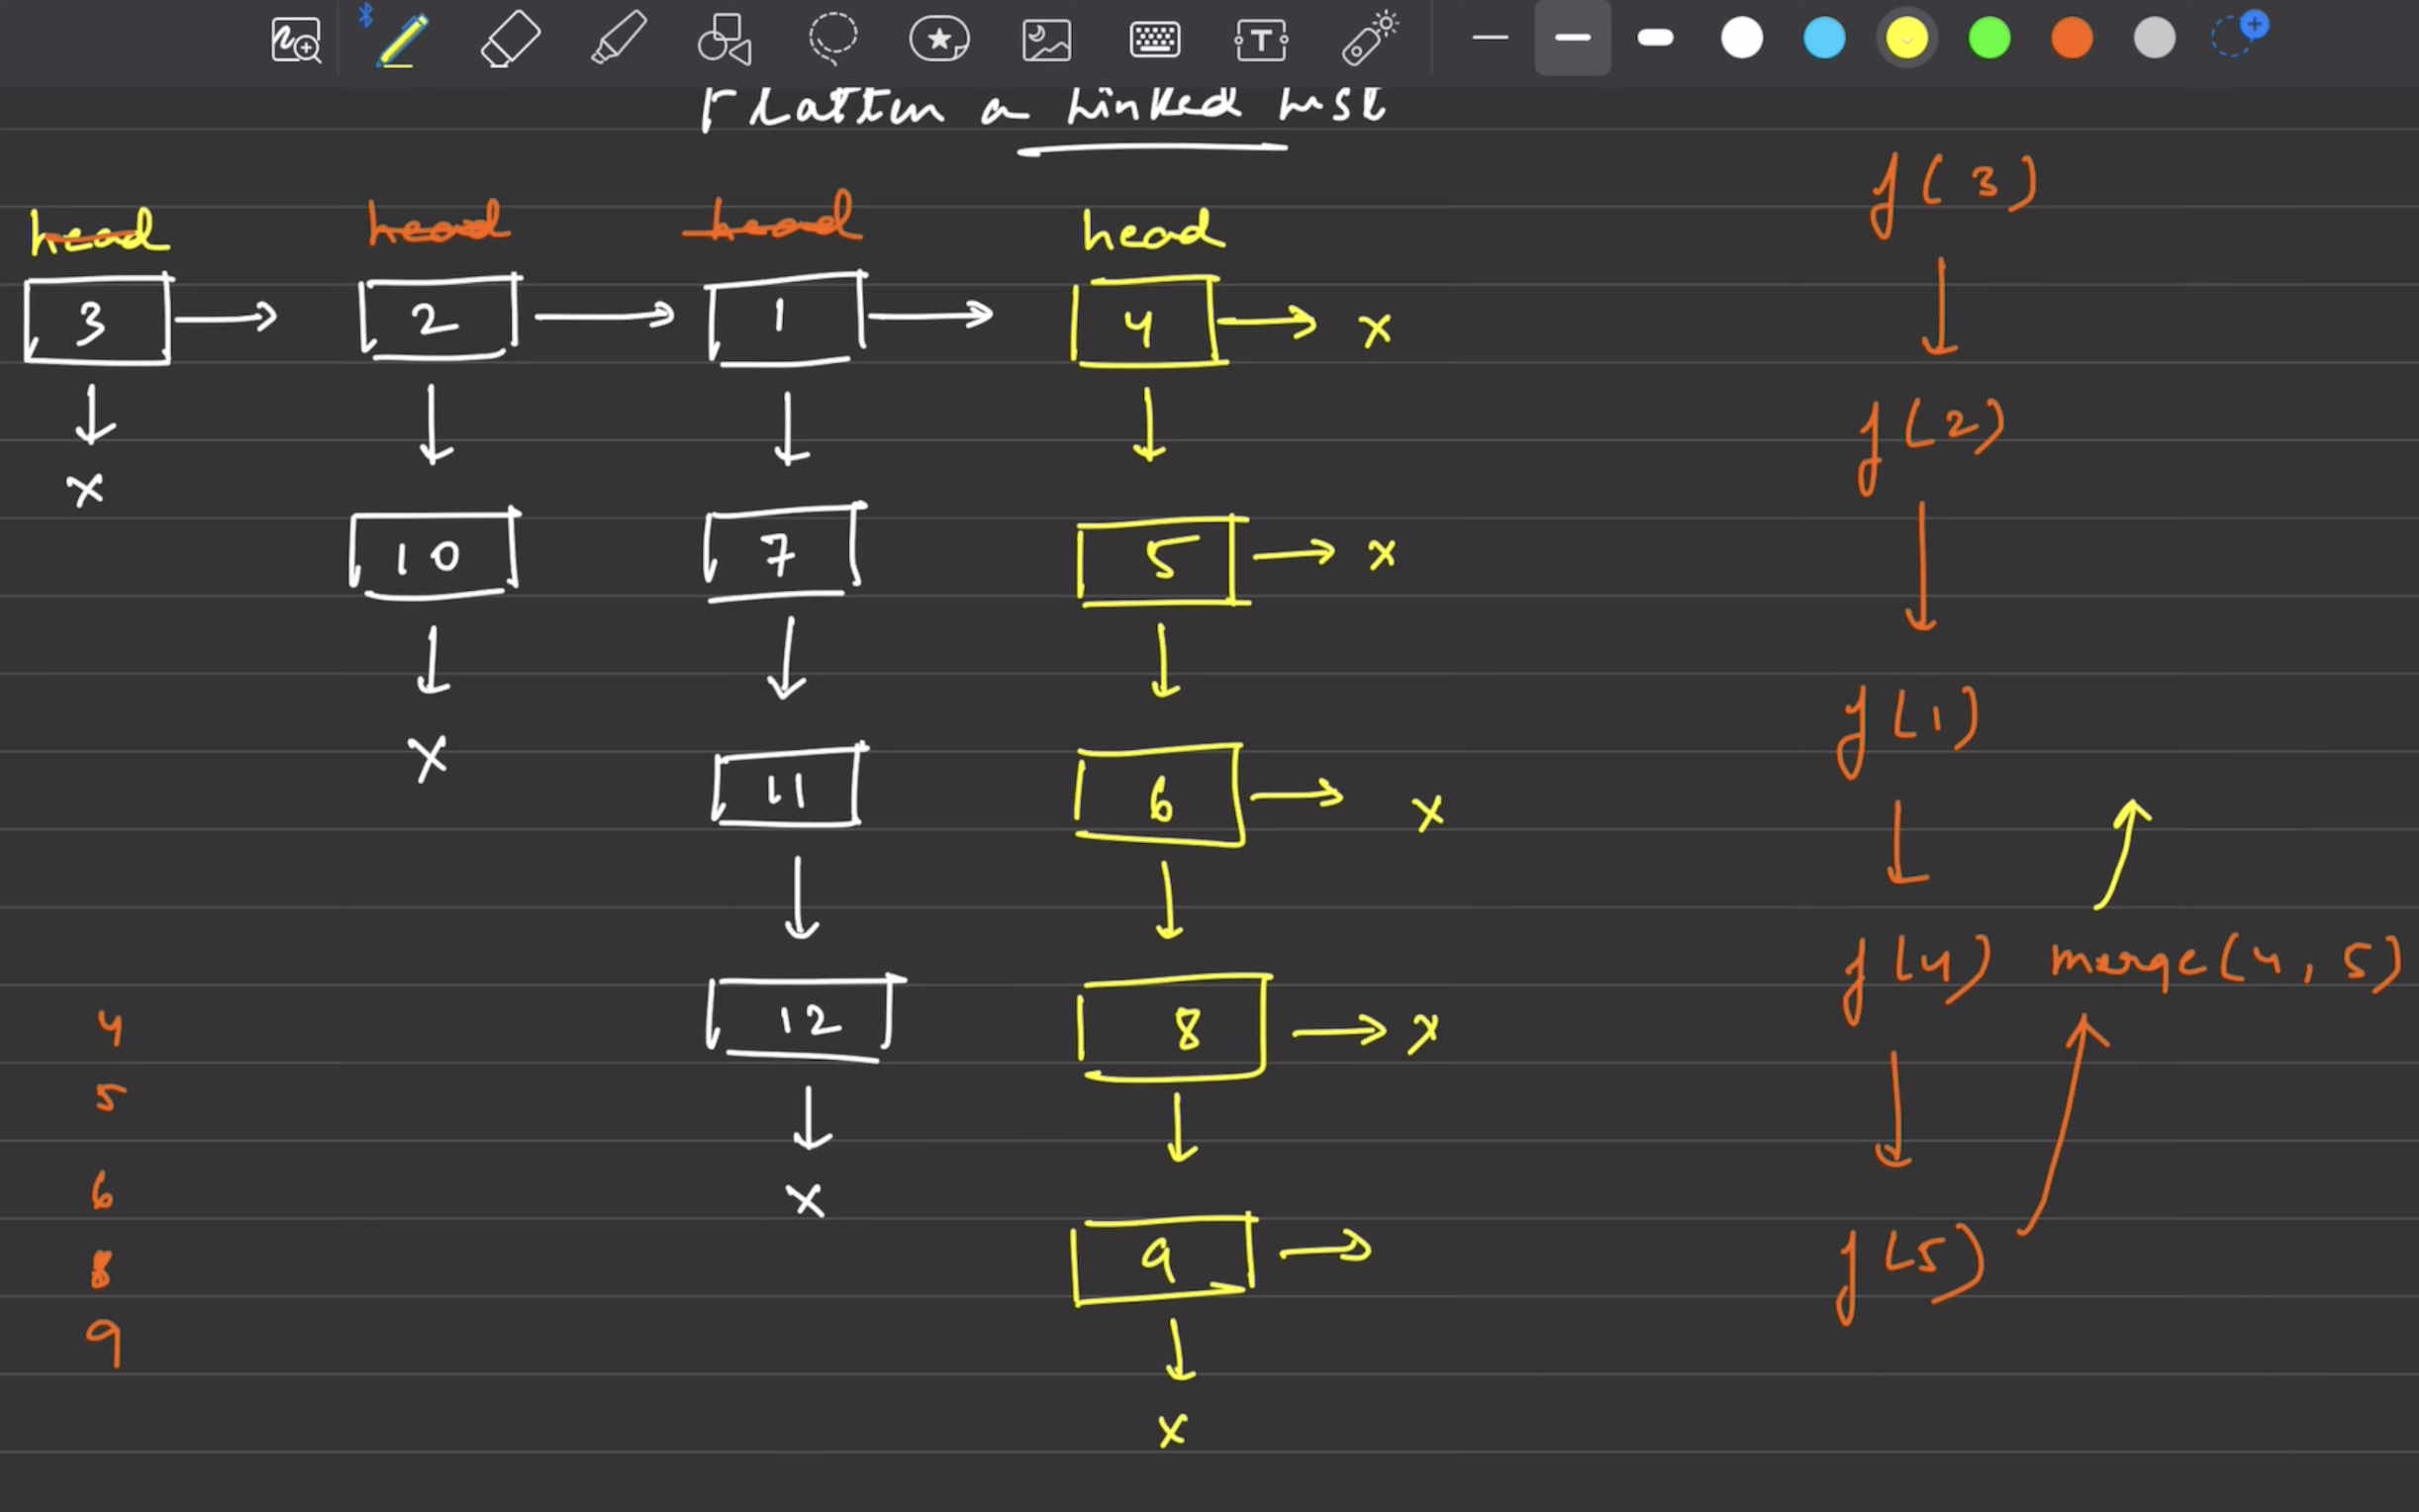 Flatten a Linked List
head head head head
3 → 2 → 1 → 4 → x
x
10 7 5 → x
x
11 6 → x
12 8 → x
x
9 →
x
4
5
6
8
9
f(3)
f(2)
f(1)
f(4) merge(4,5)
f(5)